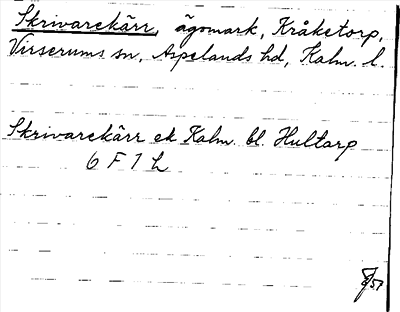 Skrivarekärr, ägomark, Kråketorp,
Virserums sn, Aspelands hd, Kalm. l.
Skrivarekärr ek Kalm. bl. Hultarp
6 F 1 h